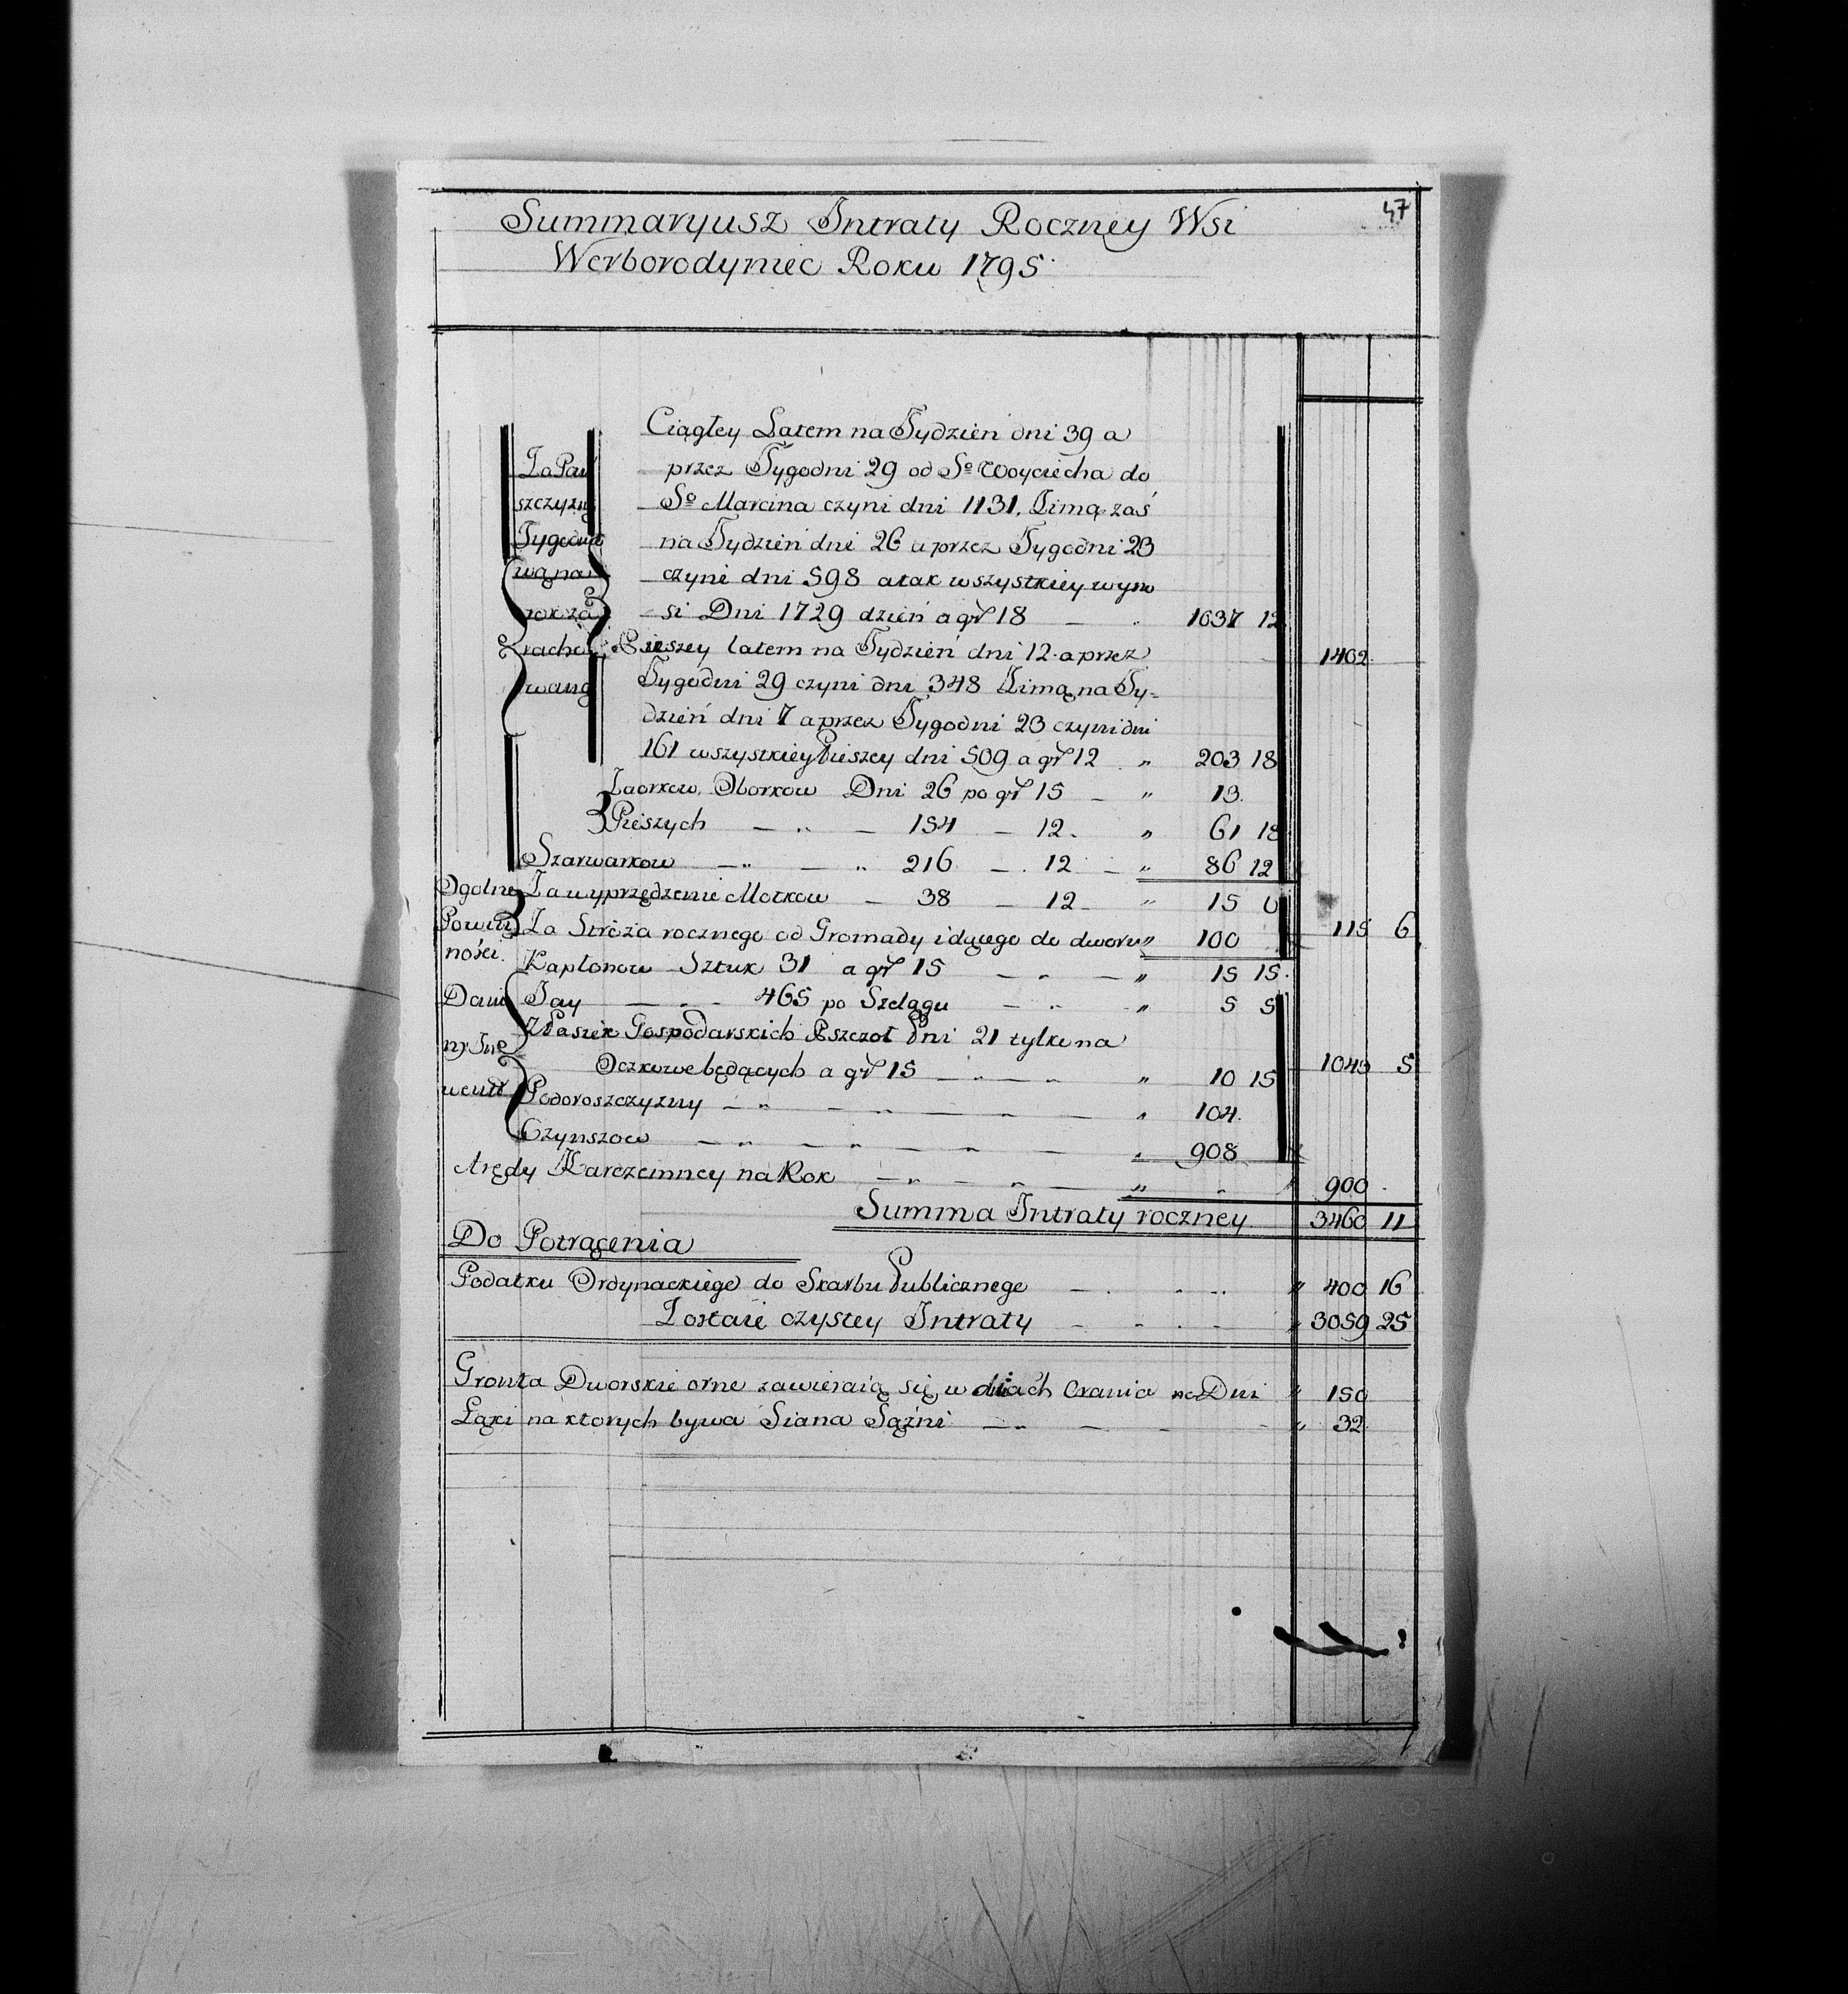 47
Summaryusz Intraty Roczney Wsi
Werborodyniec Roku 1795
Ciągłey Latem na Tydzien dni 39 a
Za Pań przez Tygodni 29 od So Woyciecha do
szczyznę So Marcina czyni dni 1131, Zimą zaś
Tygodnio na Tydzien dni 26 a przez Tygodni 23
wą na czyni dni 598 a tak wszystkiey wyno
rok za si Dni 1729 dzień a gr 18 1037 12
racho Pieszey latem na Tydzień dni 12 a przez 1402
waną Tygodni 29 czyni dni 348 Zimą na Ty-
dzień dni 7 a przez Tygodni 23 czyni dni
161 wszystkiey Pieszey dni 509 a gr 12 " 203 18
Zaorkow, Oborkow Dni 26 po gr 15 " 13
Pieszych 154 12 " 61 18
Szarwarkow 216 12 " 86 12
Ogolne Za wyprzędzenie Motkow 38 12 " 15 6
Powin Za Stróża rocznego od Gromady idącego do dworu " 100 115 6
ności
Kapłonow Sztuk 31 a gr 15 " 15 15
Dani Jay 465 po Szelągu " 5 5
Z Pasiek Gospodarskich Pszczoł Pni 21 tylko na
ny Inw Oczkowe będących a gr 15 " 10 15 1043 5
went Podoroszczyzny " 104
Czynszow " 908
Arędy Karczemney na Rok " 900
Summa Intraty roczney 3460 11
Do Potrącenia
Podatku Ordynackiego do Skarbu Publicznego " 400 16
Zostaie czystey Intraty " 3059 25
Gronta Dworskie orne zawieraią się w dniach Orania na Dni " 150
Łąki na ktorych bywa Siana Sążni " 32